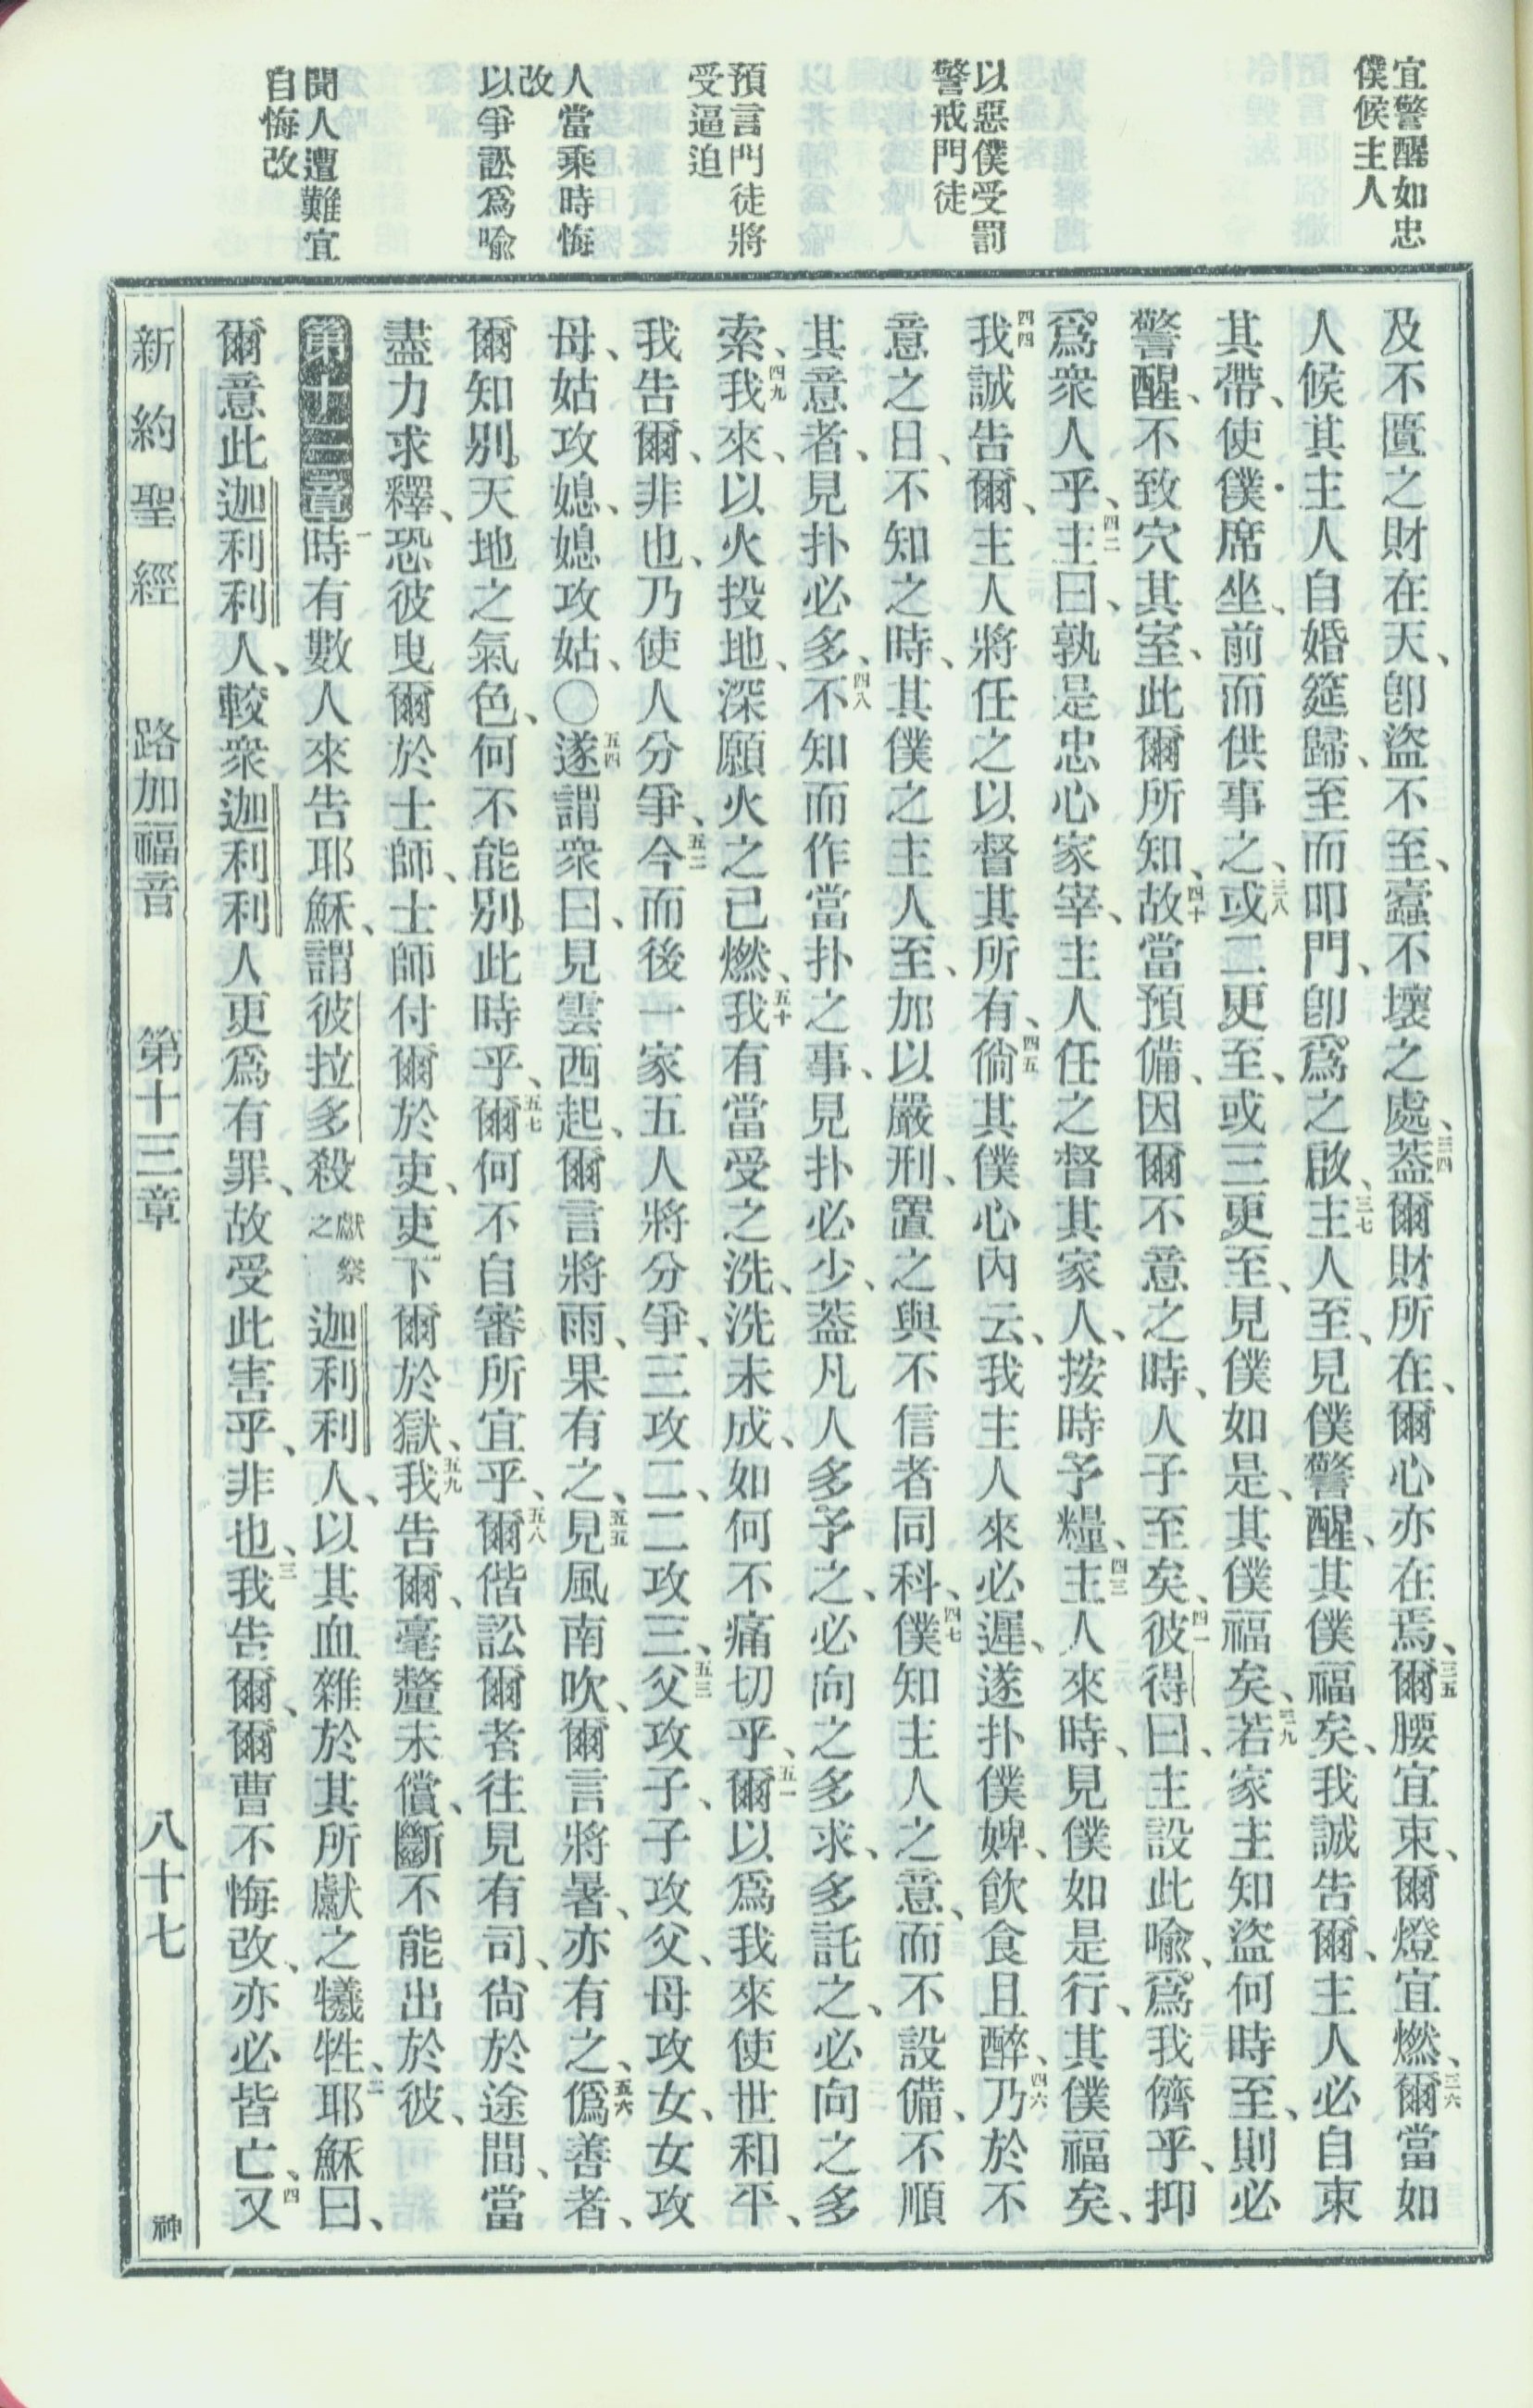 宜警醒如忠
僕候主人
以惡僕受罰
警戒門徒
預言門徒將
受逼迫
人當乘時悔
改
以爭訟爲喻
聞人遭難宜
自悔改
及不匱之財在天、卽盜不至、蠹不壞之處、三四蓋爾財所在、爾心亦在焉、三五爾腰宜束、爾燈宜燃、三六爾當如
人候其主人自婚筵歸、至而叩門、卽爲之啟、三七主人至、見僕警醒、其僕福矣、我誠告爾、主人必自束
其帶、使僕席坐、前而供事之、三八或二更至、或三更至、見僕如是、其僕福矣、三九若家主知盜何時至、則必
警醒、不致穴其室、此爾所知、四十故當預備、因爾不意之時、人子至矣、四一彼得曰、主設此喻、爲我儕乎、抑
爲衆人乎、四二主曰、孰是忠心家宰、主人任之督其家人、按時予糧、四三主人來時、見僕如是行、其僕福矣、
四四我誠告爾、主人將任之以督其所有、四五倘其僕心內云、我主人來必遲、遂扑僕婢、飲食且醉、四六乃於不
意之日、不知之時、其僕之主人至、加以嚴刑、置之與不信者同科、四七僕知主人之意、而不設備、不順
其意者、見扑必多、四八不知而作當扑之事、見扑必少、蓋凡人多予之、必向之多求、多託之、必向之多
索、四九我來、以火投地、深願火之已燃、五十我有當受之洗、洗未成、如何不痛切乎、五一爾以爲我來使世和平、
我告爾、非也、乃使人分爭、五二今而後一家五人將分爭、三攻二、二攻三、五三父攻子、子攻父、母攻女、女攻
母、姑攻媳、媳攻姑、〇五四遂謂衆曰、見雲西起、爾言將雨、果有之、五五見風南吹、爾言將暑、亦有之、五六僞善者、
爾知別天地之氣色、何不能別此時乎、五七爾何不自審所宜乎、五八爾偕訟爾者往見有司、尙於途間、當
盡力求釋、恐彼曳爾於士師、士師付爾於吏、吏下爾於獄、五九我告爾、毫釐未償、斷不能出於彼、
第十三章一時有數人來告耶穌、謂彼拉多殺獻祭之迦利利人、以其血雜於其所獻之犧牲、二耶穌曰、
爾意此迦利利人、較衆迦利利人更爲有罪、故受此害乎、三非也、我告爾、爾曹不悔改、亦必皆亡、四又
新約聖經 路加福音 第十三章 八十七 神